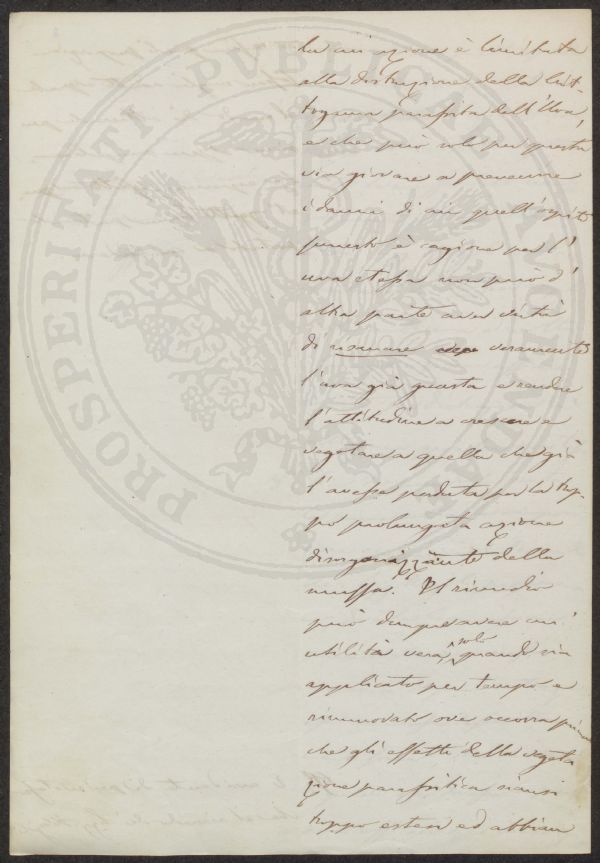 la cui azione è limitata
alla distruzione della Crit-
togama parassita dell'Uva,
e che può solo per questa
via giovare a prevenire
i danni di cui quell'ospite
funesto è cagione per l'
uva stessa non può d'
altra parte aver virtù
di risanare veramente
l'uva già guasta e rendere
l'attitudine a crescere e
vegetare a quella che già
l'avesse perduta per la trop-
po prolungata azione
disorganizzante della
muffa. Il rimedio
può dunque avere un'
utilità vera, solo quando sia
applicato per tempo e
rinnovato ove occorra prima
che gli effetti della vegeta
zione parassitica siansi
troppo estesi ed abbian
PROSPERITATI PUBLICAE AVGENDAE